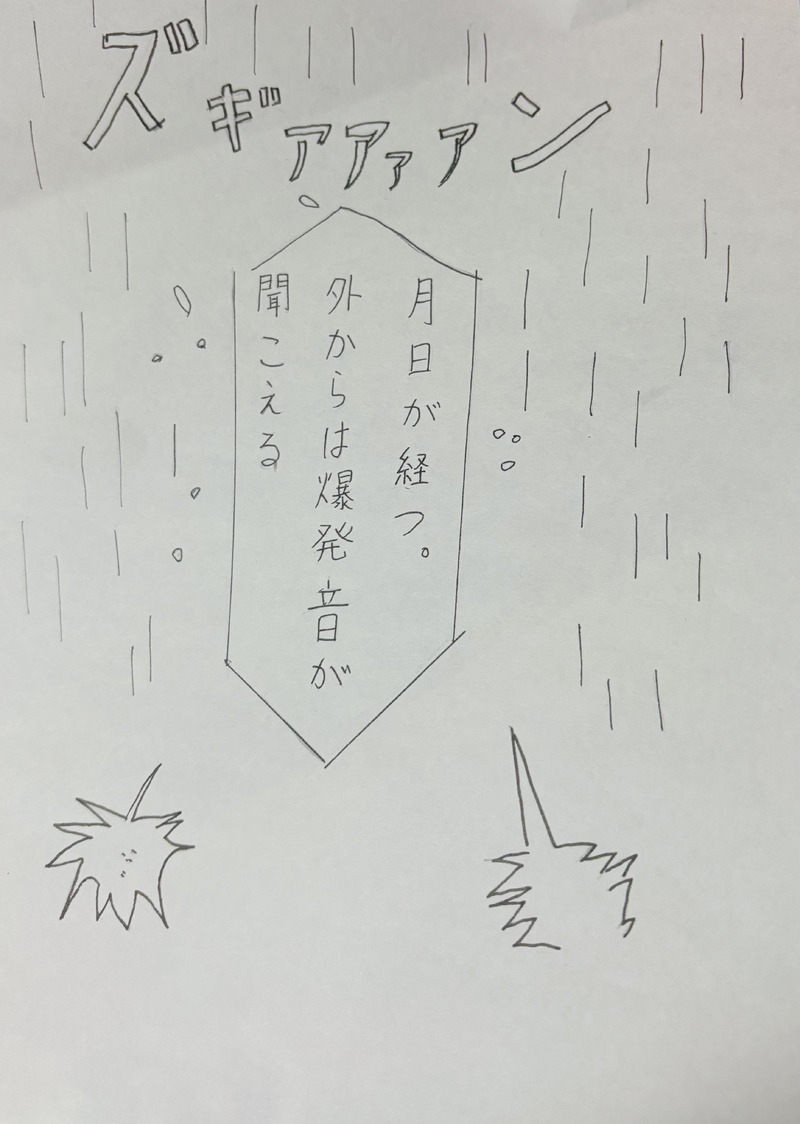 ズギァアァァン
月日が経つ。
外からは爆発音が
聞こえる